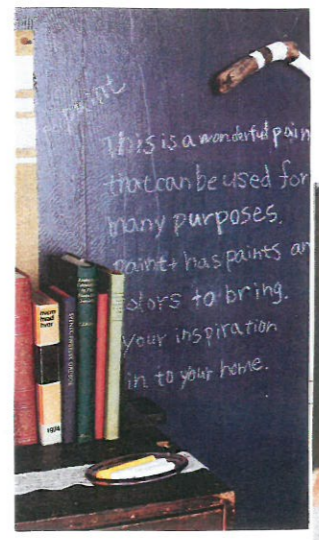 paint
This is a wonderful pain
that can be used for
many purposes.
paint+ has paints an
olors to bring.
your inspiration
in to your home.
mom
mad
hvor
1974